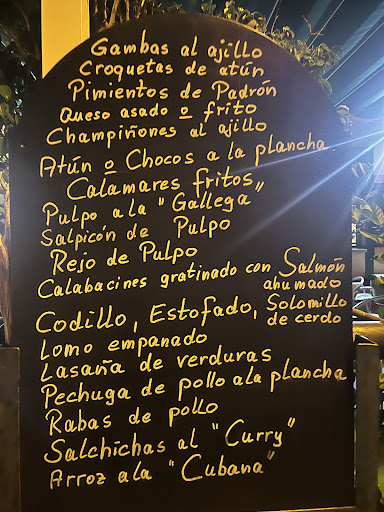 Gambas al ajillo
Croquetas de atún
Pimientos de Padrón
Queso asado o frito
Champiñones al ajillo
Atún o Chocos a la plancha
Calamares fritos
Pulpo a la "Gallega"
Salpicón de Pulpo
Rejo de Pulpo
Calabacines gratinado con Salmón ahumado
Codillo, Estofado, Solomillo de cerdo
Lomo empanado
Lasaña de verduras
Pechuga de pollo a la plancha
Rabas de pollo
Salchichas al "Curry"
Arroz a la "Cubana"